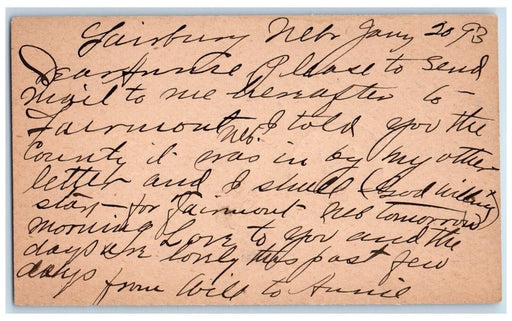 Fairbury Nebr Jany 20 93
Dear Annie Please to send
mail to me hereafter to
Fairmont Neb. I told you the
County it was in by my other
letter and I shall (God willing)
start for Fairmont Neb tomorrow
morning Love to you and the
days are lonly this past few
days
from Will to Annie